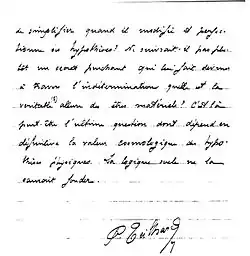 de simplifier quand il modifie et perfec-
tionne ses hypothèses? Ne suivrait-il pas plu-
tôt un secret penchant qui lui fait deviner
à travers l'indétermination quelle est la
véritable allure des êtres matériels? C'est là
peut-être l'ultime question dont dépend en
définitive la valeur cosmologique des hypo-
thèses physiques. La logique seule ne la
saurait fonder.
P. Teilhard